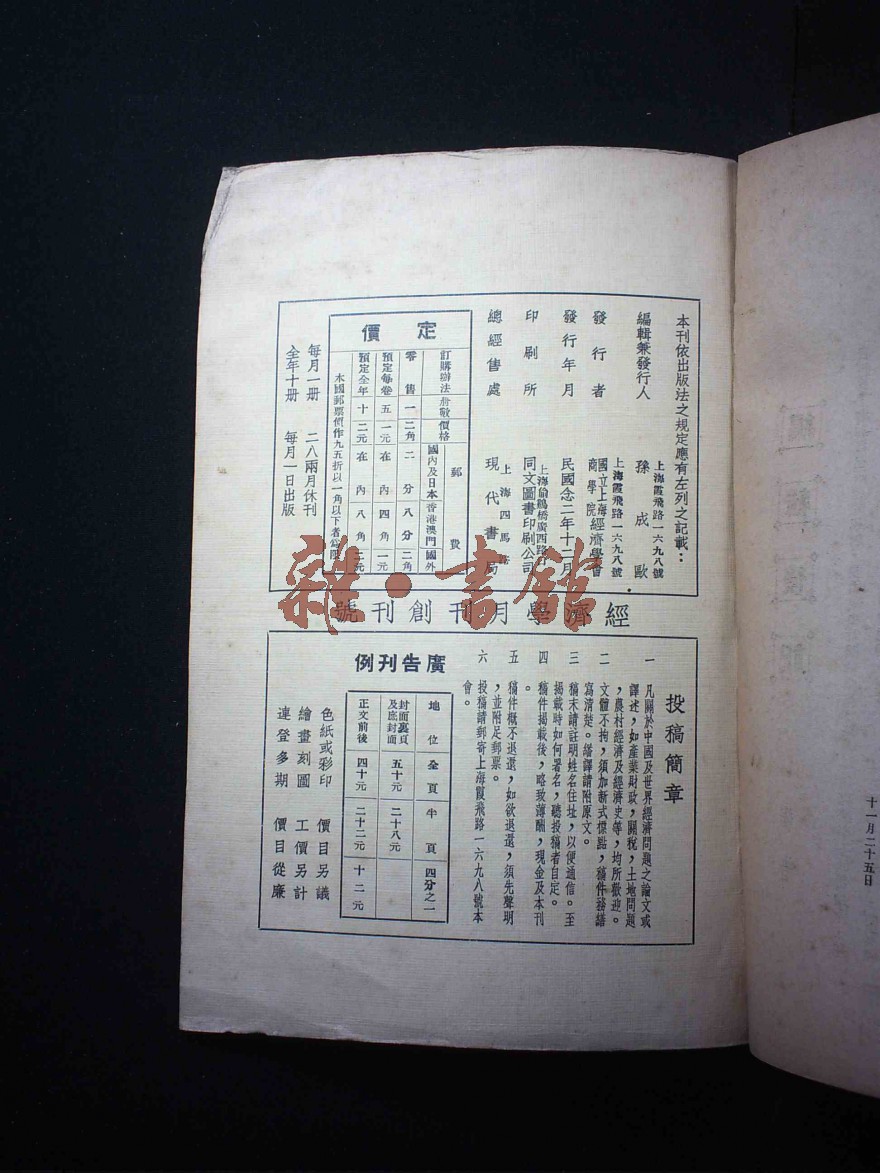 本刊依出版法之規定應有左列之記載：
編輯兼發行人 孫成歐
上海霞飛路一六九八號
發行者 國立上海商學院經濟學會
上海霞飛路一六九八號
發行年月 民國念二年十二月
印刷所 同文圖書印刷公司
總經售處 現代書局
上海四馬路
定價
訂購辦法 冊數 價格 郵費 國內及日本 香港澳門 國外
零售 一 二角 二分 八分 二角
預定每卷 五 一元 在內 四角 一元
預定全年 十 二元 在內 八角 二元
每月一冊 二八兩月休刊
全年十冊 每月一日出版
經濟學月刊創刊號
投稿簡章
一 凡關於中國及世界經濟問題之論文或
譯述，如產業財政，關稅，土地問題
，農村經濟及經濟史等，均所歡迎。
二 文體不拘，須加新式標點，稿件務繕
寫清楚。繙譯請附原文。
三 稿末請註明姓名住址，以便通信。至
揭載時如何署名，聽投稿者自定。
四 稿件揭載後，略致薄酬，現金及本刊
五 稿件概不退還，如欲退還，須先聲明
，並附足郵票。
六 投稿請郵寄上海霞飛路一六九八號本
會。
廣告刊例
地位 全頁 半頁 四分之一
封面裏頁及底封面 五十元 二十八元
正文前後 四十元 二十二元 十二元
色紙或彩印 價目另議
繪畫刻圖 工價另計
連登多期 價目從廉
十一月二十五日
雜·書館